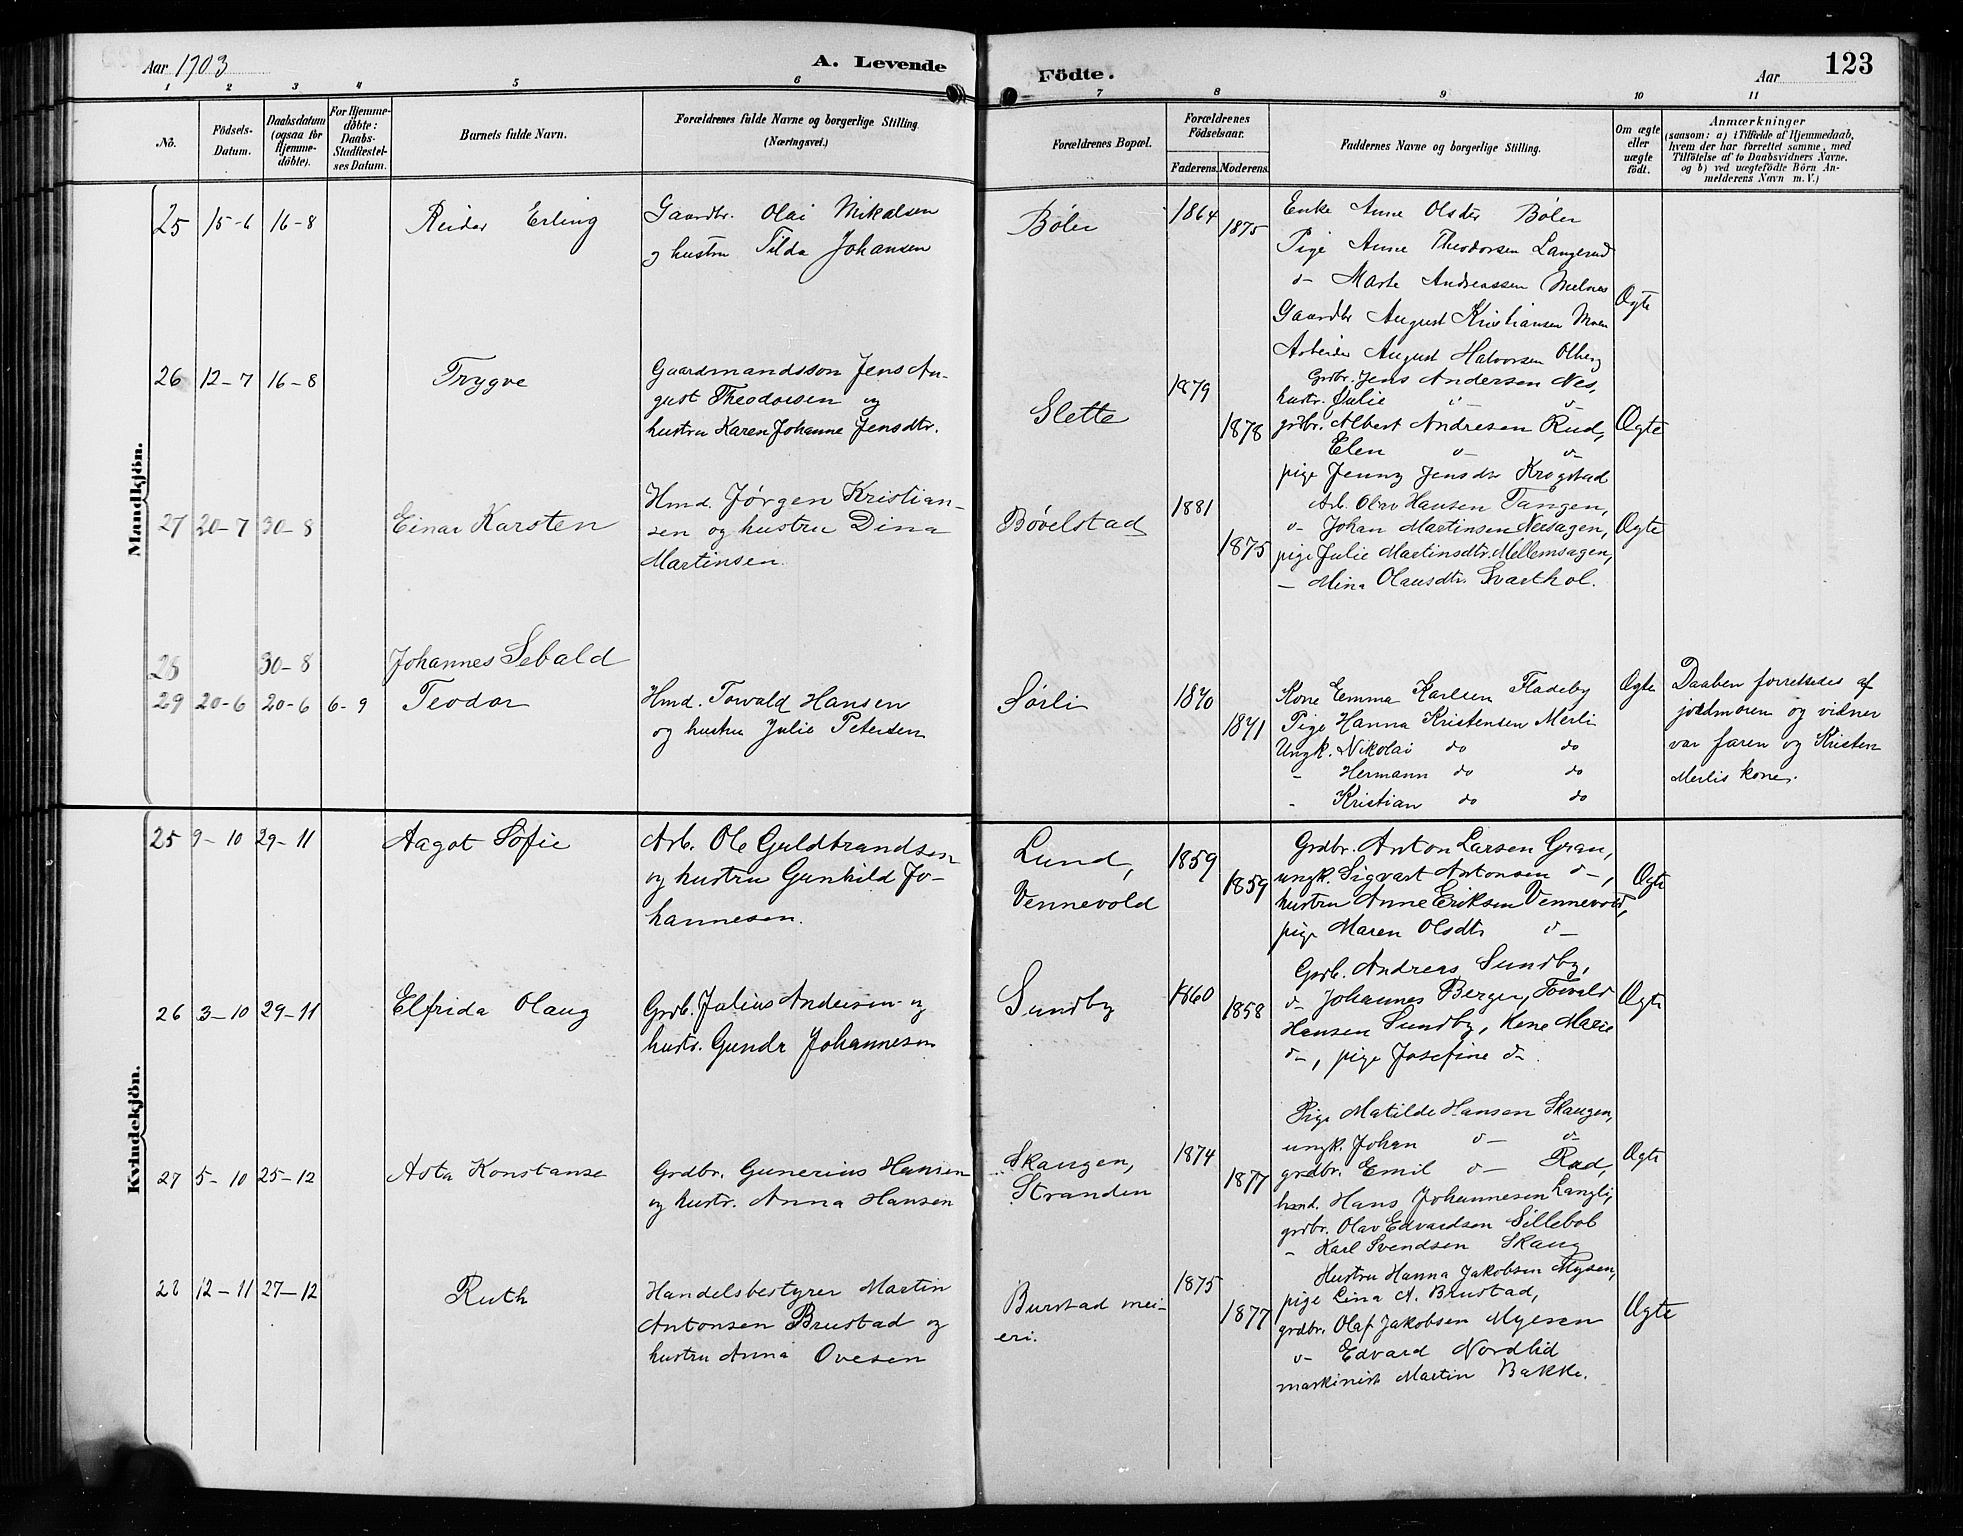 Aar 1903
A. Levende
Födte.
Aar
123
1 2 3 4 5 6 7 8 9 10 11
No.
Födsels-
Datum.
Daabsdatum
(ogsaa for
Hjemme-
döbte).
For Hjemme-
döbte:
Daabs-
Stadfæstel-
ses Datum.
Barnets fulde Navn.
Forældrenes fulde Navne og borgerlige Stilling.
(Næringsvei.)
Forældrenes Bopæl.
Forældrenes
Födselsaar.
Faderens. Moderens.
Faddernes Navne og borgerlige Stilling.
Om ægte
eller
uægte
födt.
Anmærkninger
(saasom: a) i Tilfælde af Hjemmedaab,
hvem der har forrettet samme, med
Tilföielse af to Daabsvidners Navne.
og b) ved uægtefödte Börn An-
melderens Navn m. V.)
Mandkjön.
25 15-6 16-8
Reidar Erling
Gaardbr. Olai Mikalsen
og hustru Tilda Johansen
Bøler
1864
1875
Enke Anne Olsdtr Bøler
Pige Anne Theodorsen Langerud
d- Marte Andreassen Melnes
Gaardbr August Kristiansen Moen
Arbeider August Halvorsen Olberg
Ægte
26 12-7 16-8
Trygve
Gaardmandssøn Jens Au-
gust Theodorsen og
hustru Karen Johanne Jensdtr.
Slette
1879
1878
Grdbr. Jens Andersen Nes,
hustr. Julie d- d-
grdbr. Albert Andresen Rud,
Elen d- d-
pige Jenny Jensdtr Krogstad
Ægte
27 20-7 30-8
Einar Karsten
Hmd. Jørgen Kristian-
sen og hustru Dina
Martinsen.
Bøvelstad
1881
1875
Arb. Olav Hansen Tangen,
d- Johan Martinsen Nessagen,
pige Julie Martinsdtr. Mellemsagen,
- Mina Olausdtr. Svarthol.
Ægte
28 30-8
Johannes Sebald
29 20-6 20-6 6-9
Teodor
Hmd. Torvald Hansen
og hustru Julie Petersen
Sørli
1870
1871
Kone Emma Karlsen Fladeby
Pige Hanna Kristensen Merli
Ungk. Nikolai do do
- Hermann do do
- Kristian do do
Ægte
Daaben forrettedes af
jordmoren og vidner
var faren og Kristen
Merlis kone.
Kvindekjön.
25 9-10 29-11
Aagot Sofie
Arb. Ole Guldbrandsen
og hustru Gunhild Jo-
hannesen.
Lund,
Vennevold
1859
1859
Grdbr. Anton Larsen Gran,
ungk. Sigvart Antonsen d-,
hustru Anne Eriksen Vennevold,
pige Maren Olsdtr d-
Ægte
26 3-10 29-11
Elfrida Olaug
Grdb. Julius Andersen og
hustr. Gunda Johannesen
Sundby
1860
1858
Grdb. Andreas Sundby,
d- Johannes Berger, Torvald
Hansen Sundby, Kone Marie
d-, pige Josefine d-.
Ægte
27 5-10 25-12
Asta Konstanse
Grdbr. Gunerius Hansen
og hustr. Anna Hansen
Skaugen,
Stranden
1874
1877
Pige Matilde Hansen Skaugen,
ungk. Johan d- d-
grdbr. Emil d- Rud,
hmd. Hans Johannesen Langli,
grdbr. Olav Edvardsen Sillebøl
- Karl Svendsen Skaug
Ægte
28 12-11 27-12
Ruth
Handelsbestyrer Martin
Antonsen Brustad og
hustru Anna Ovesen
Burstad mei-
eri.
1875
1877
Hustru Hanna Jakobsen Mysen,
pige Lina A. Brustad,
grdbr. Olaf Jakobsen Mysen
d- Edvard Nordlid
maskinist Martin Bakke.
Ægte